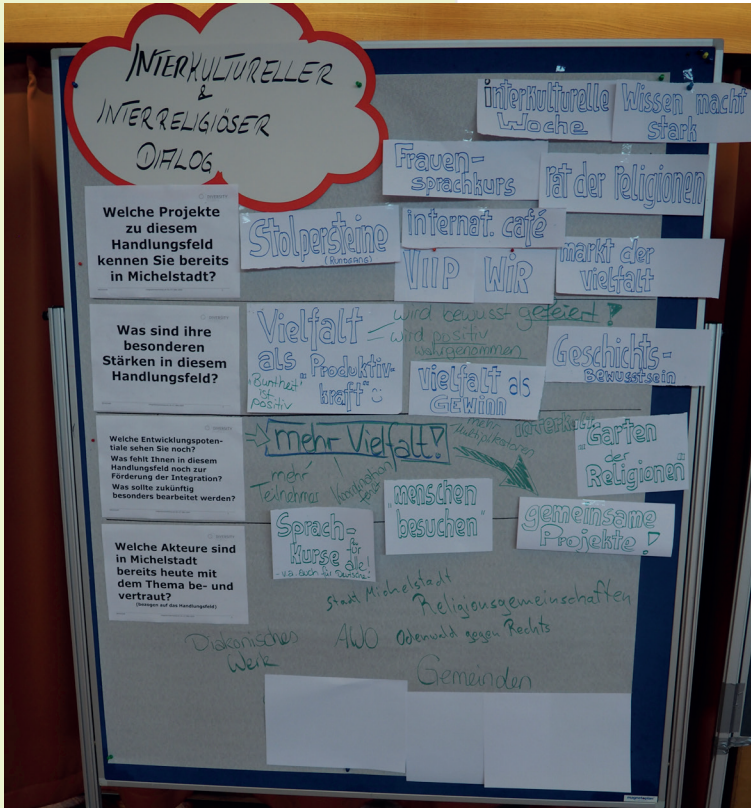 INTERKULTURELLER
&
INTERRELIGIÖSER
DIALOG
interkulturelle
Woche
Wissen macht
stark
Frauen-
sprachkurs
rat der religionen
Welche Projekte
zu diesem
Handlungsfeld
kennen Sie bereits
in Michelstadt?
Stolpersteine
(RUNDGANG)
internat. café
VIIP WIR
markt der
vielfalt
Was sind ihre
besonderen
Stärken in diesem
Handlungsfeld?
Vielfalt
als "Produktiv-
kraft"
"Buntheit
ist
positiv
wird bewusst gefeiert!
wird positiv
wahrgenommen
vielfalt als
GEWINN
Geschichts-
BEWUSSTSEIN
Welche Entwicklungspoten-
tiale sehen Sie noch?
Was fehlt Ihnen in diesem
Handlungsfeld noch zur
Förderung der Integration?
Was sollte zukünftig
besonders bearbeitet werden?
mehr Vielfalt!
mehr
Multiplikatoren
"Garten
der
Religionen"
mehr
Teilnehmer
"menschen
besuchen"
gemeinsame
Projekte!
Sprach-
kurse für
alle!
Welche Akteure sind
in Michelstadt
bereits heute mit
dem Thema be- und
vertraut?
(bezogen auf das Handlungsfeld)
Stadt Michelstadt
Religionsgemeinschaften
Diakonisches
Werk
AWO
Odenwald gegen Rechts
Gemeinden